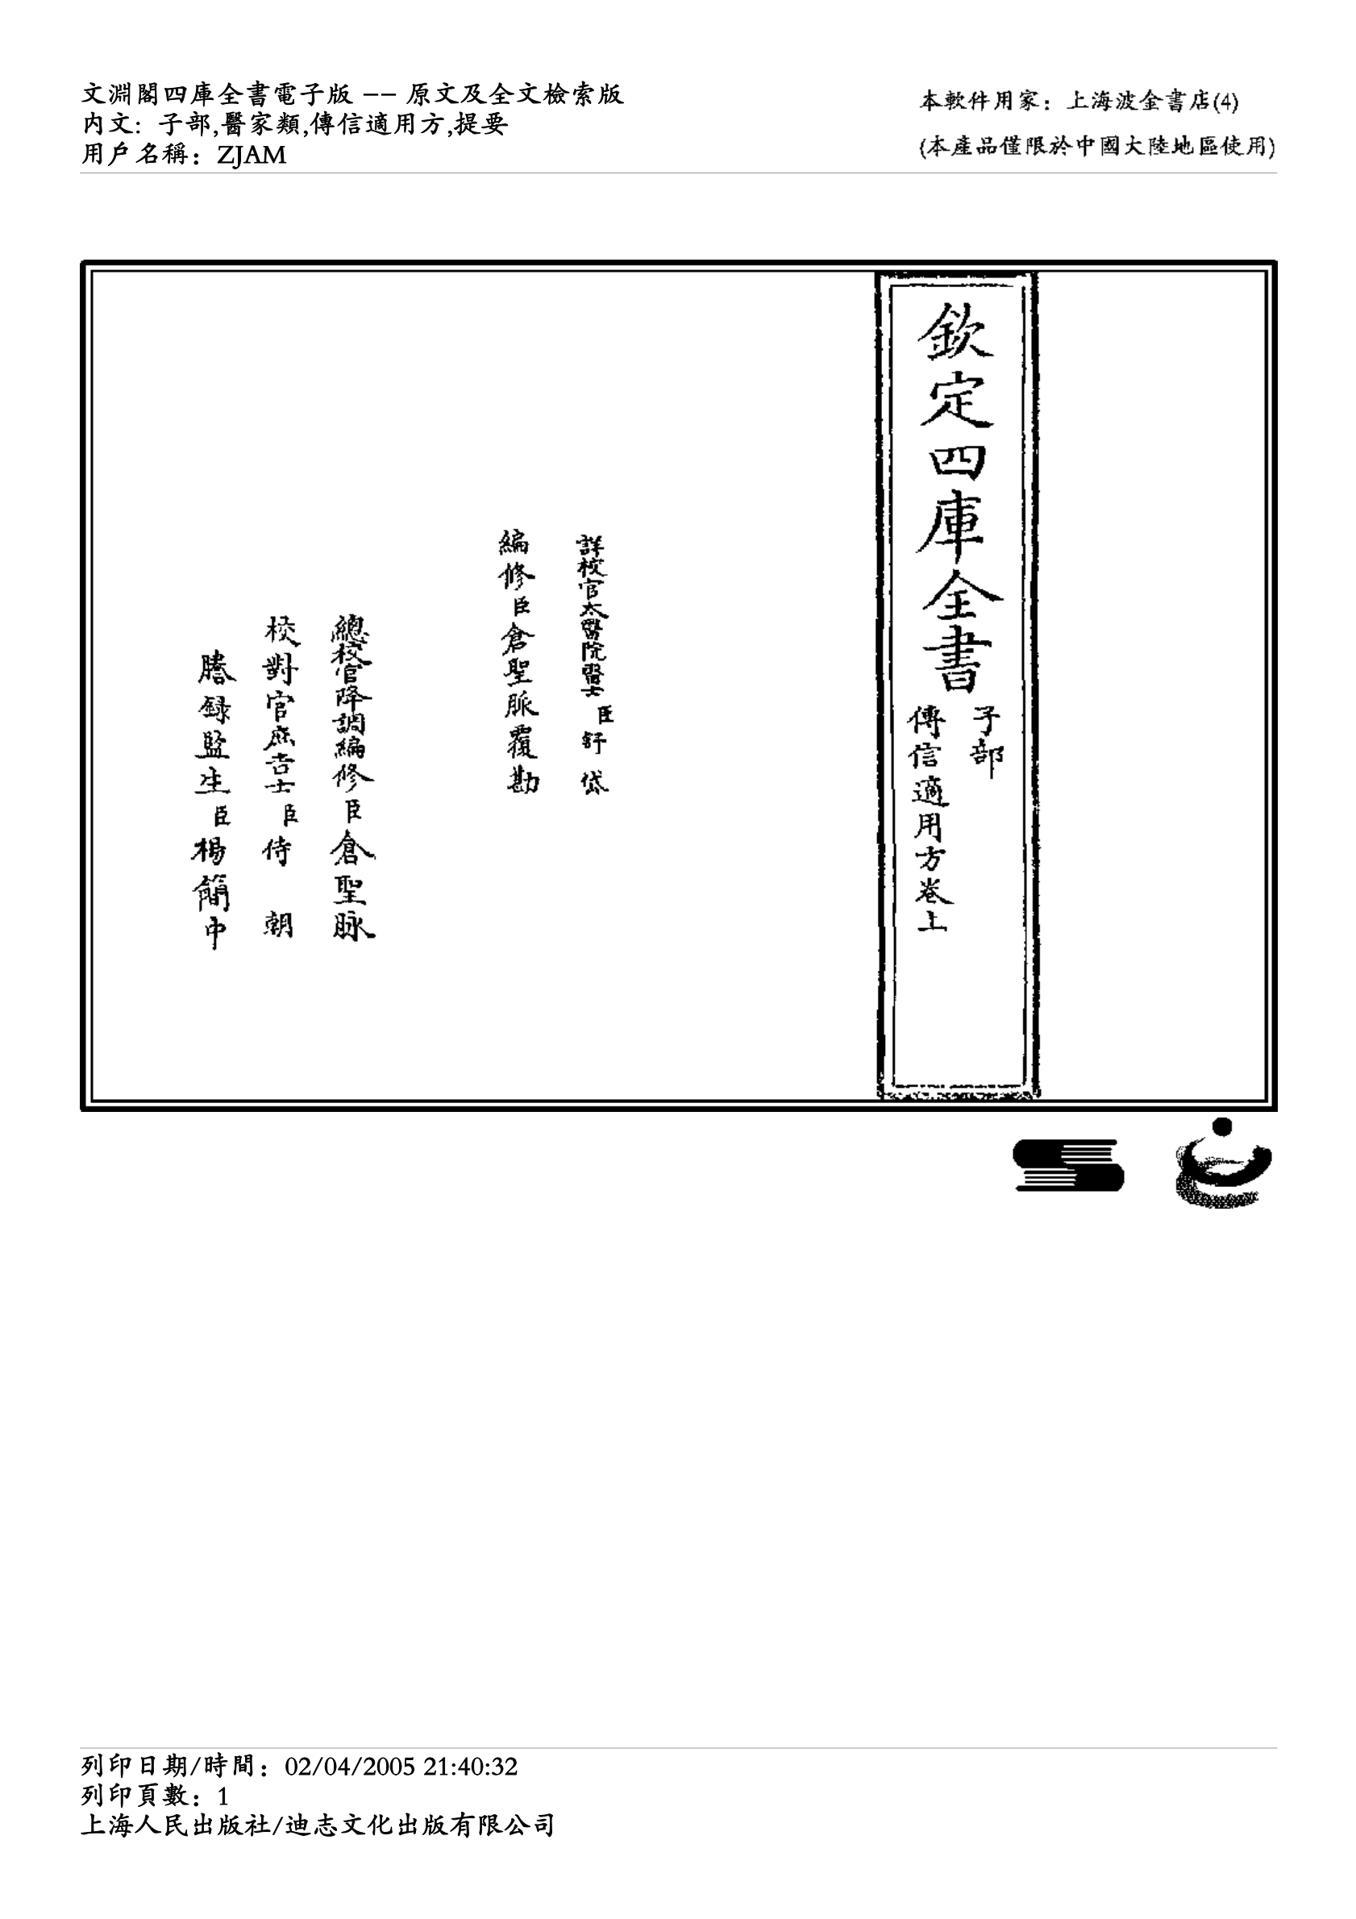 文淵閣四庫全書電子版 -- 原文及全文檢索版
内文: 子部,醫家類,傳信適用方,提要
用戶名稱: ZJAM
本軟件用家: 上海波金書店(4)
(本產品僅限於中國大陸地區使用)
欽定四庫全書
子部
傳信適用方卷上
詳校官太醫院醫士臣舒岱
編修臣倉聖脈覆勘
總校官降調編修臣倉聖脉
校對官庶吉士臣侍朝
謄録監生臣楊簡中
列印日期/時間: 02/04/2005 21:40:32
列印頁數: 1
上海人民出版社/迪志文化出版有限公司